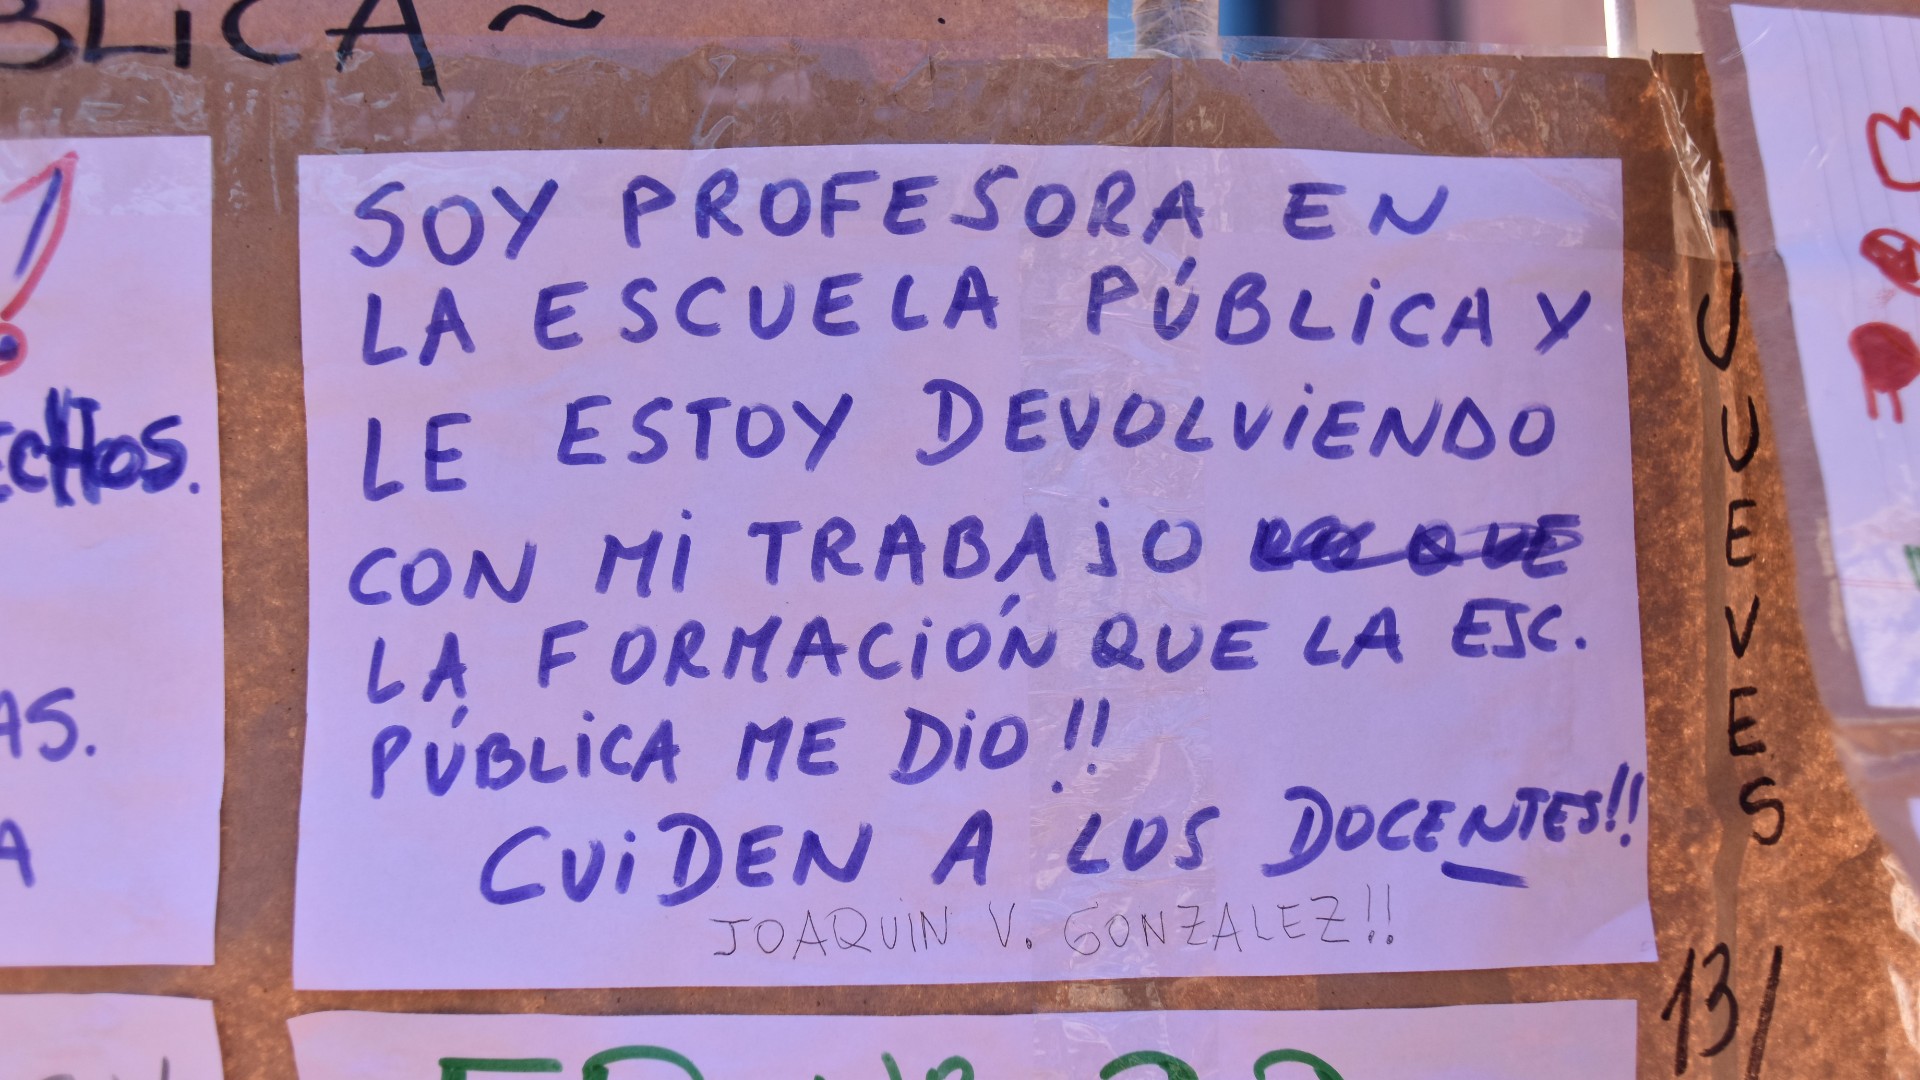 BLICA ~
SOY PROFESORA EN
LA ESCUELA PÚBLICA Y
LE ESTOY DEVOLVIENDO
CON MI TRABAJO
LA FORMACIÓN QUE LA ESC.
PÚBLICA ME DIO!!
CUIDEN A LOS DOCENTES!!
JOAQUIN V. GONZALEZ!!
ECHOS.
AS.
A
JUEVES
13/